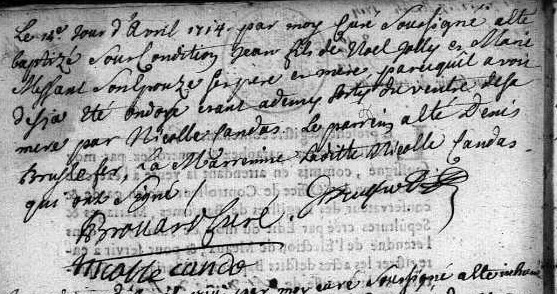 Le 14e Jour d'Avril 1714. par moy Curé Soussigné a été
baptizé Sous Condition Jean fils de Noel Jolly et Marie
Messant Son Epouze Ses pere et mere parcequil avoit
desja été ondoyé etant a demy Sorty du ventre de sa
mere par Nicolle Candas. Le parrein a été Denis
Bruslefer, La Marrenne Laditte Nicolle Candas.
qui ont Signé
Brouard Curé.
nicolle cando
par moy curé Soussigné a été inhumé